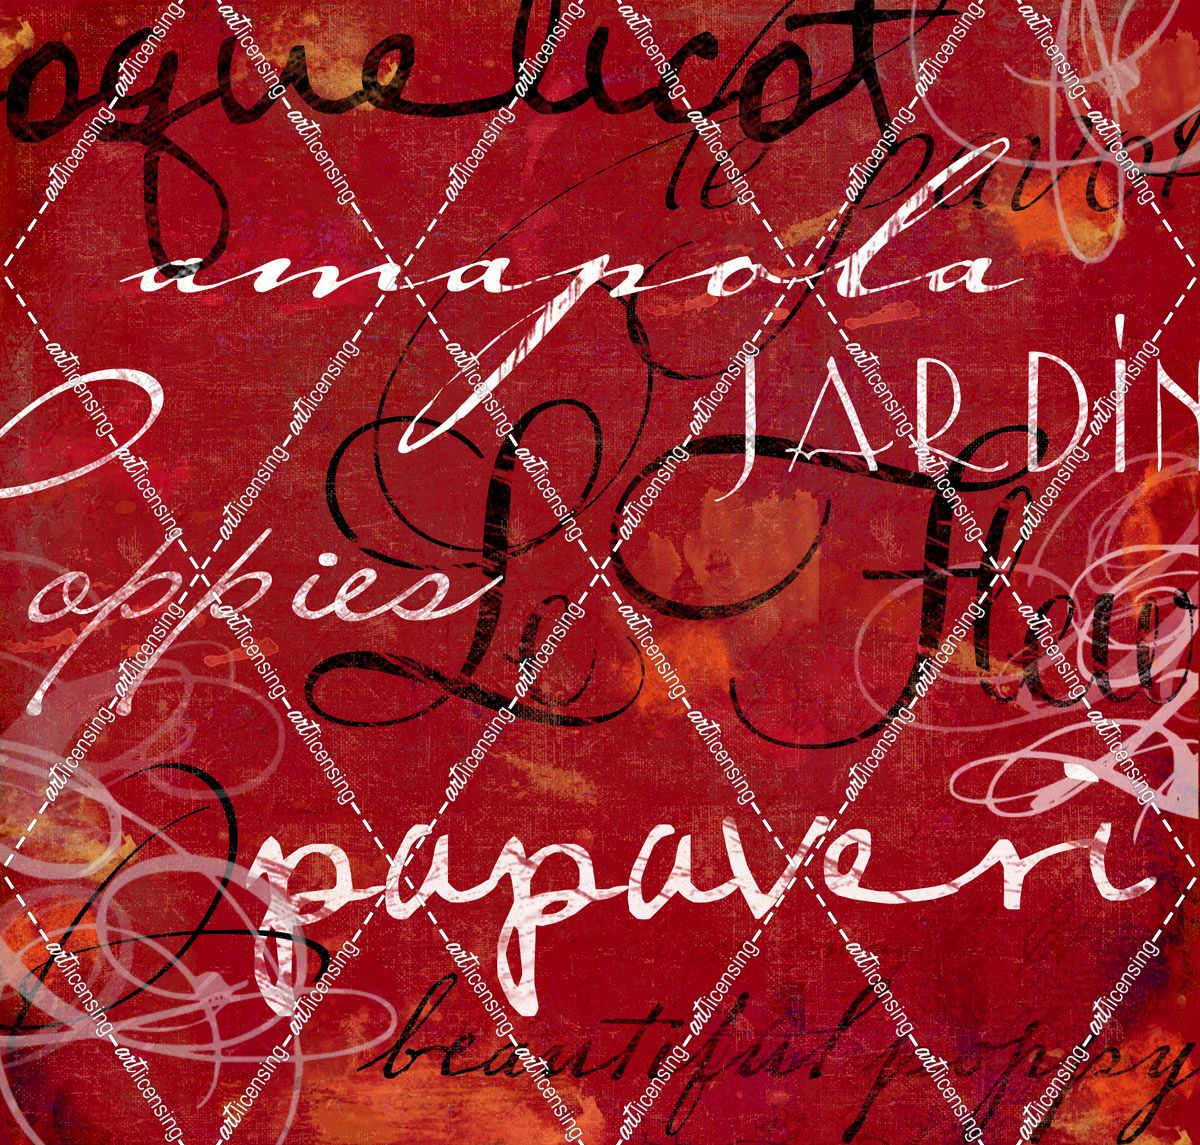 oquelicot
le pavot
amapola
JARDÍN
oppies
La Fleur
papaveri
beautiful poppy
artlicensing